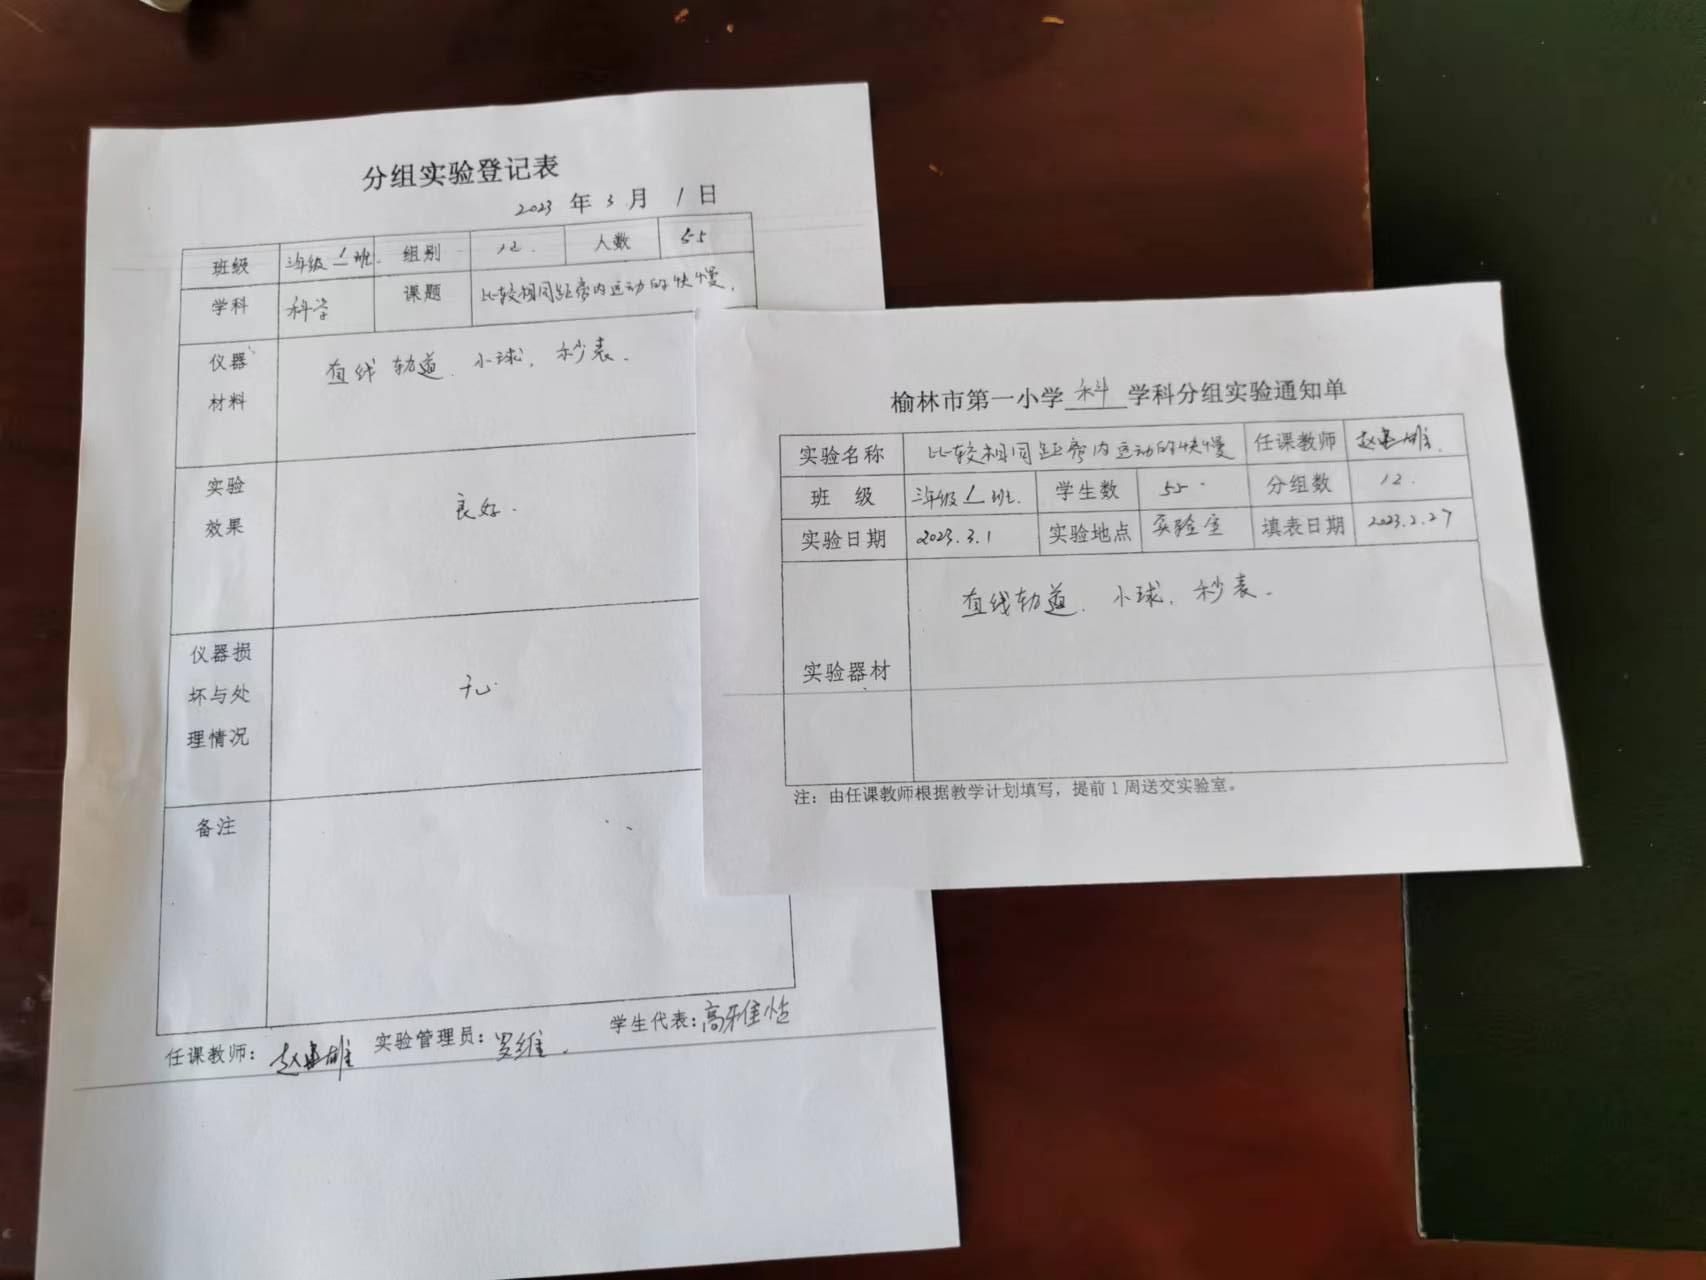 分组实验登记表
2023 年 3 月 1 日
班级 三年级 1 班. 组别 12. 人数 55
学科 科学 课题 比较相同距离内运动的快慢.
仪器材料 直线轨道、小球、秒表.
实验效果 良好.
仪器损坏与处理情况 无
备注
任课教师: 实验管理员: 罗维. 学生代表: 高雅恬
榆林市第一小学 科 学科分组实验通知单
实验名称 比较相同距离内运动的快慢 任课教师
班 级 三年级 1 班. 学生数 55. 分组数 12.
实验日期 2023.3.1 实验地点 实验室 填表日期 2023.2.27
实验器材 直线轨道、小球、秒表.
注：由任课教师根据教学计划填写，提前 1 周送交实验室。